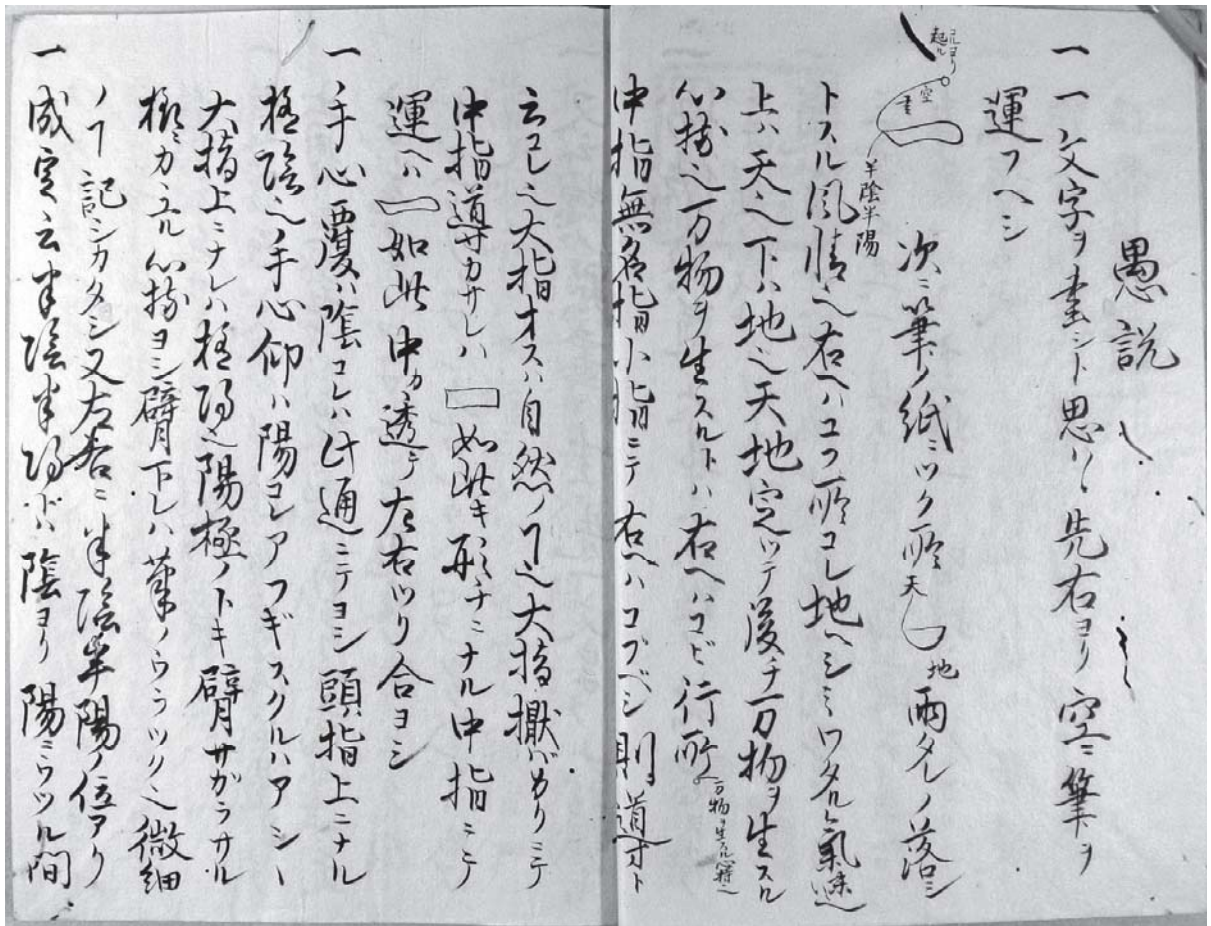 愚説
一一文字ヲ書ント思ハヽ先右ヨリ空ニ筆ヲ
運フヘシ
コレヨリ
起ル
空
書
半陰半陽
次ニ筆ノ紙ニツク所天
地
雨タレノ落ン
トスル風情ヘ右ヘハコフ所コレ地ヘシミワタル氣味也
上ハ天也下ハ地也天地定ツテ後チ万物ヲ生スル
心持也万物ヲ生スルトハ右ヘハコビ行所
万物ヲ生スル心持也
中指無名指小指ニテ右ヘハコブベシ則道オト
云コレ也大指オスハ自然ノヿ也大指擫バカリニテ
中指導サカサレハ 如此キ形チニナル中指ニテ
運ヘハ 如此中カ透テ左右ツリ合ヨシ
一手心覆ハ陰コレハ此通ニテヨシ頭指上ニナル
極陰也手心仰ハ陽コレアフギスクルハアシヽ
大指上ニナレハ極陽也陽極ノトキ臂サガラサル
心持ヨシ臂下レハ筆ノウラツク也微細
ノヿ記シカタシ又左右ニ半陰半陽ノ位アリ
一成実云半陰半陽ハ陰ヨリ陽ニウツル間